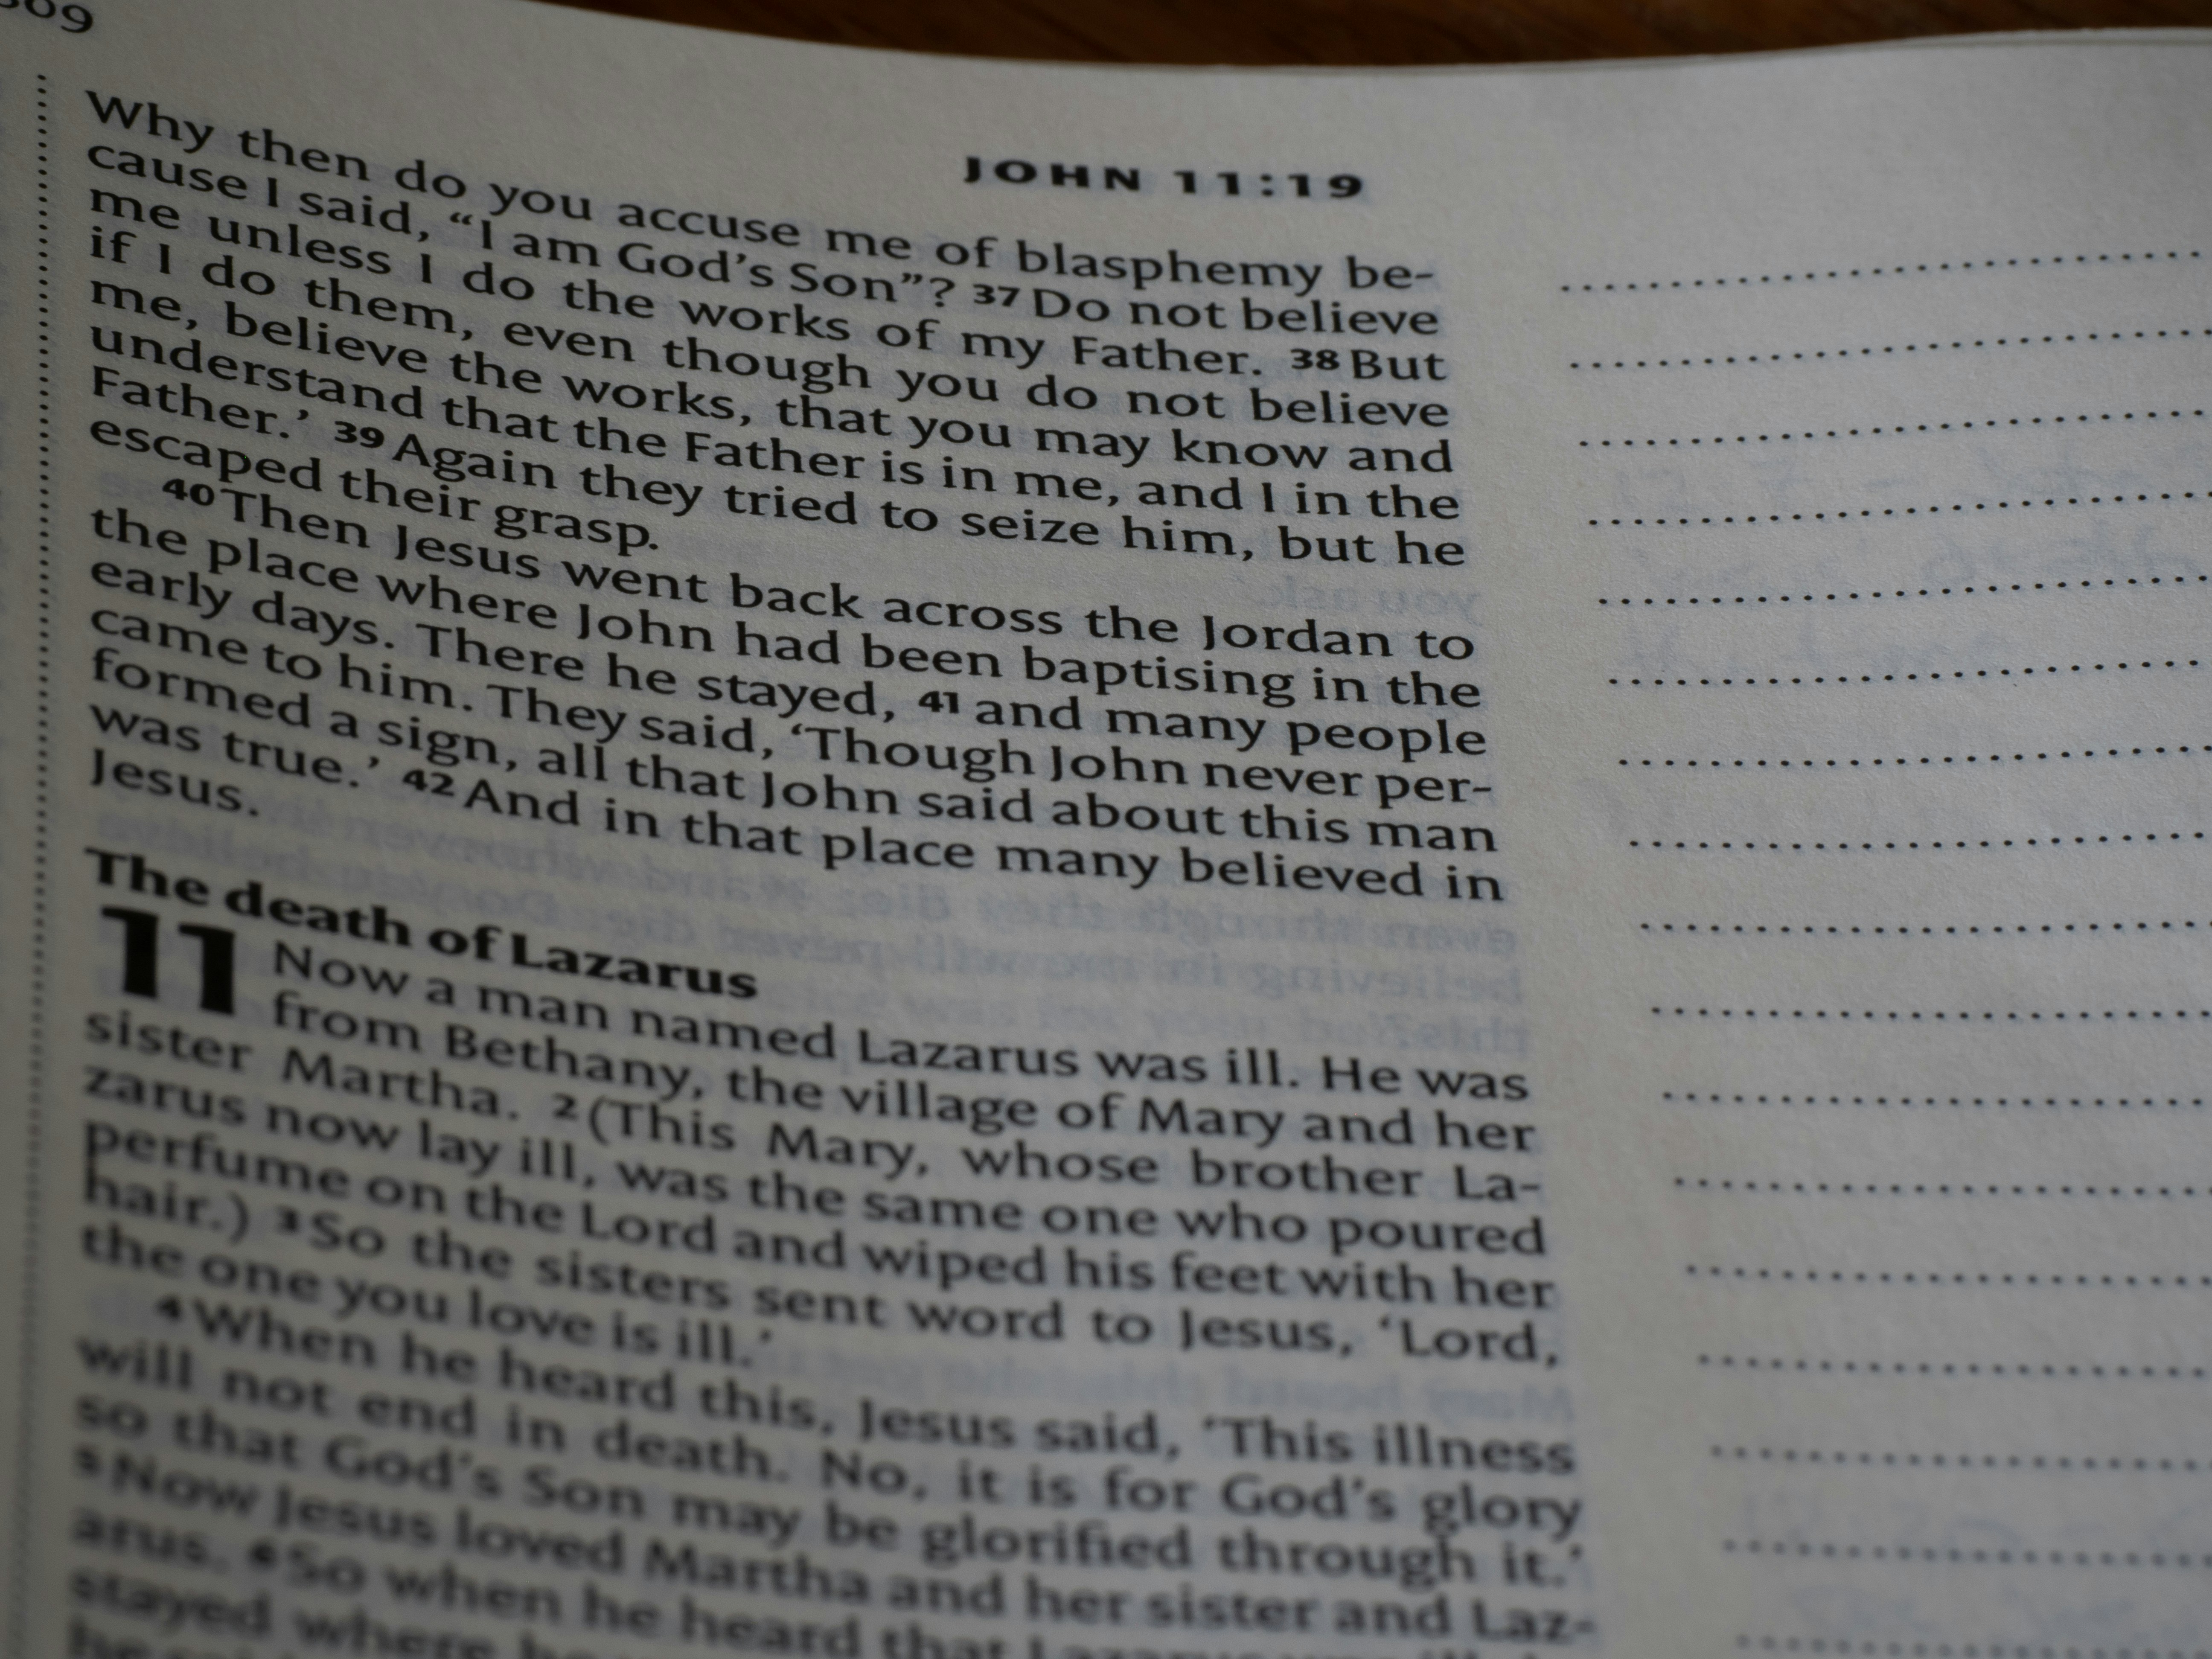 JOHN 11:19
Why then do you accuse me of blasphemy be-
cause I said, “I am God’s Son”? 37 Do not believe
me unless I do the works of my Father. 38 But
if I do them, even though you do not believe
me, believe the works, that you may know and
understand that the Father is in me, and I in the
Father.’ 39 Again they tried to seize him, but he
escaped their grasp.
40 Then Jesus went back across the Jordan to
the place where John had been baptising in the
early days. There he stayed, 41 and many people
came to him. They said, ‘Though John never per-
formed a sign, all that John said about this man
was true.’ 42 And in that place many believed in
Jesus.
The death of Lazarus
11 Now a man named Lazarus was ill. He was
from Bethany, the village of Mary and her
sister Martha. 2 (This Mary, whose brother La-
zarus now lay ill, was the same one who poured
perfume on the Lord and wiped his feet with her
hair.) 3 So the sisters sent word to Jesus, ‘Lord,
the one you love is ill.’
4 When he heard this, Jesus said, ‘This illness
will not end in death. No, it is for God’s glory
so that God’s Son may be glorified through it.’
5 Now Jesus loved Martha and her sister and Laz-
arus. 6 So when he heard that Lazarus
stayed where he